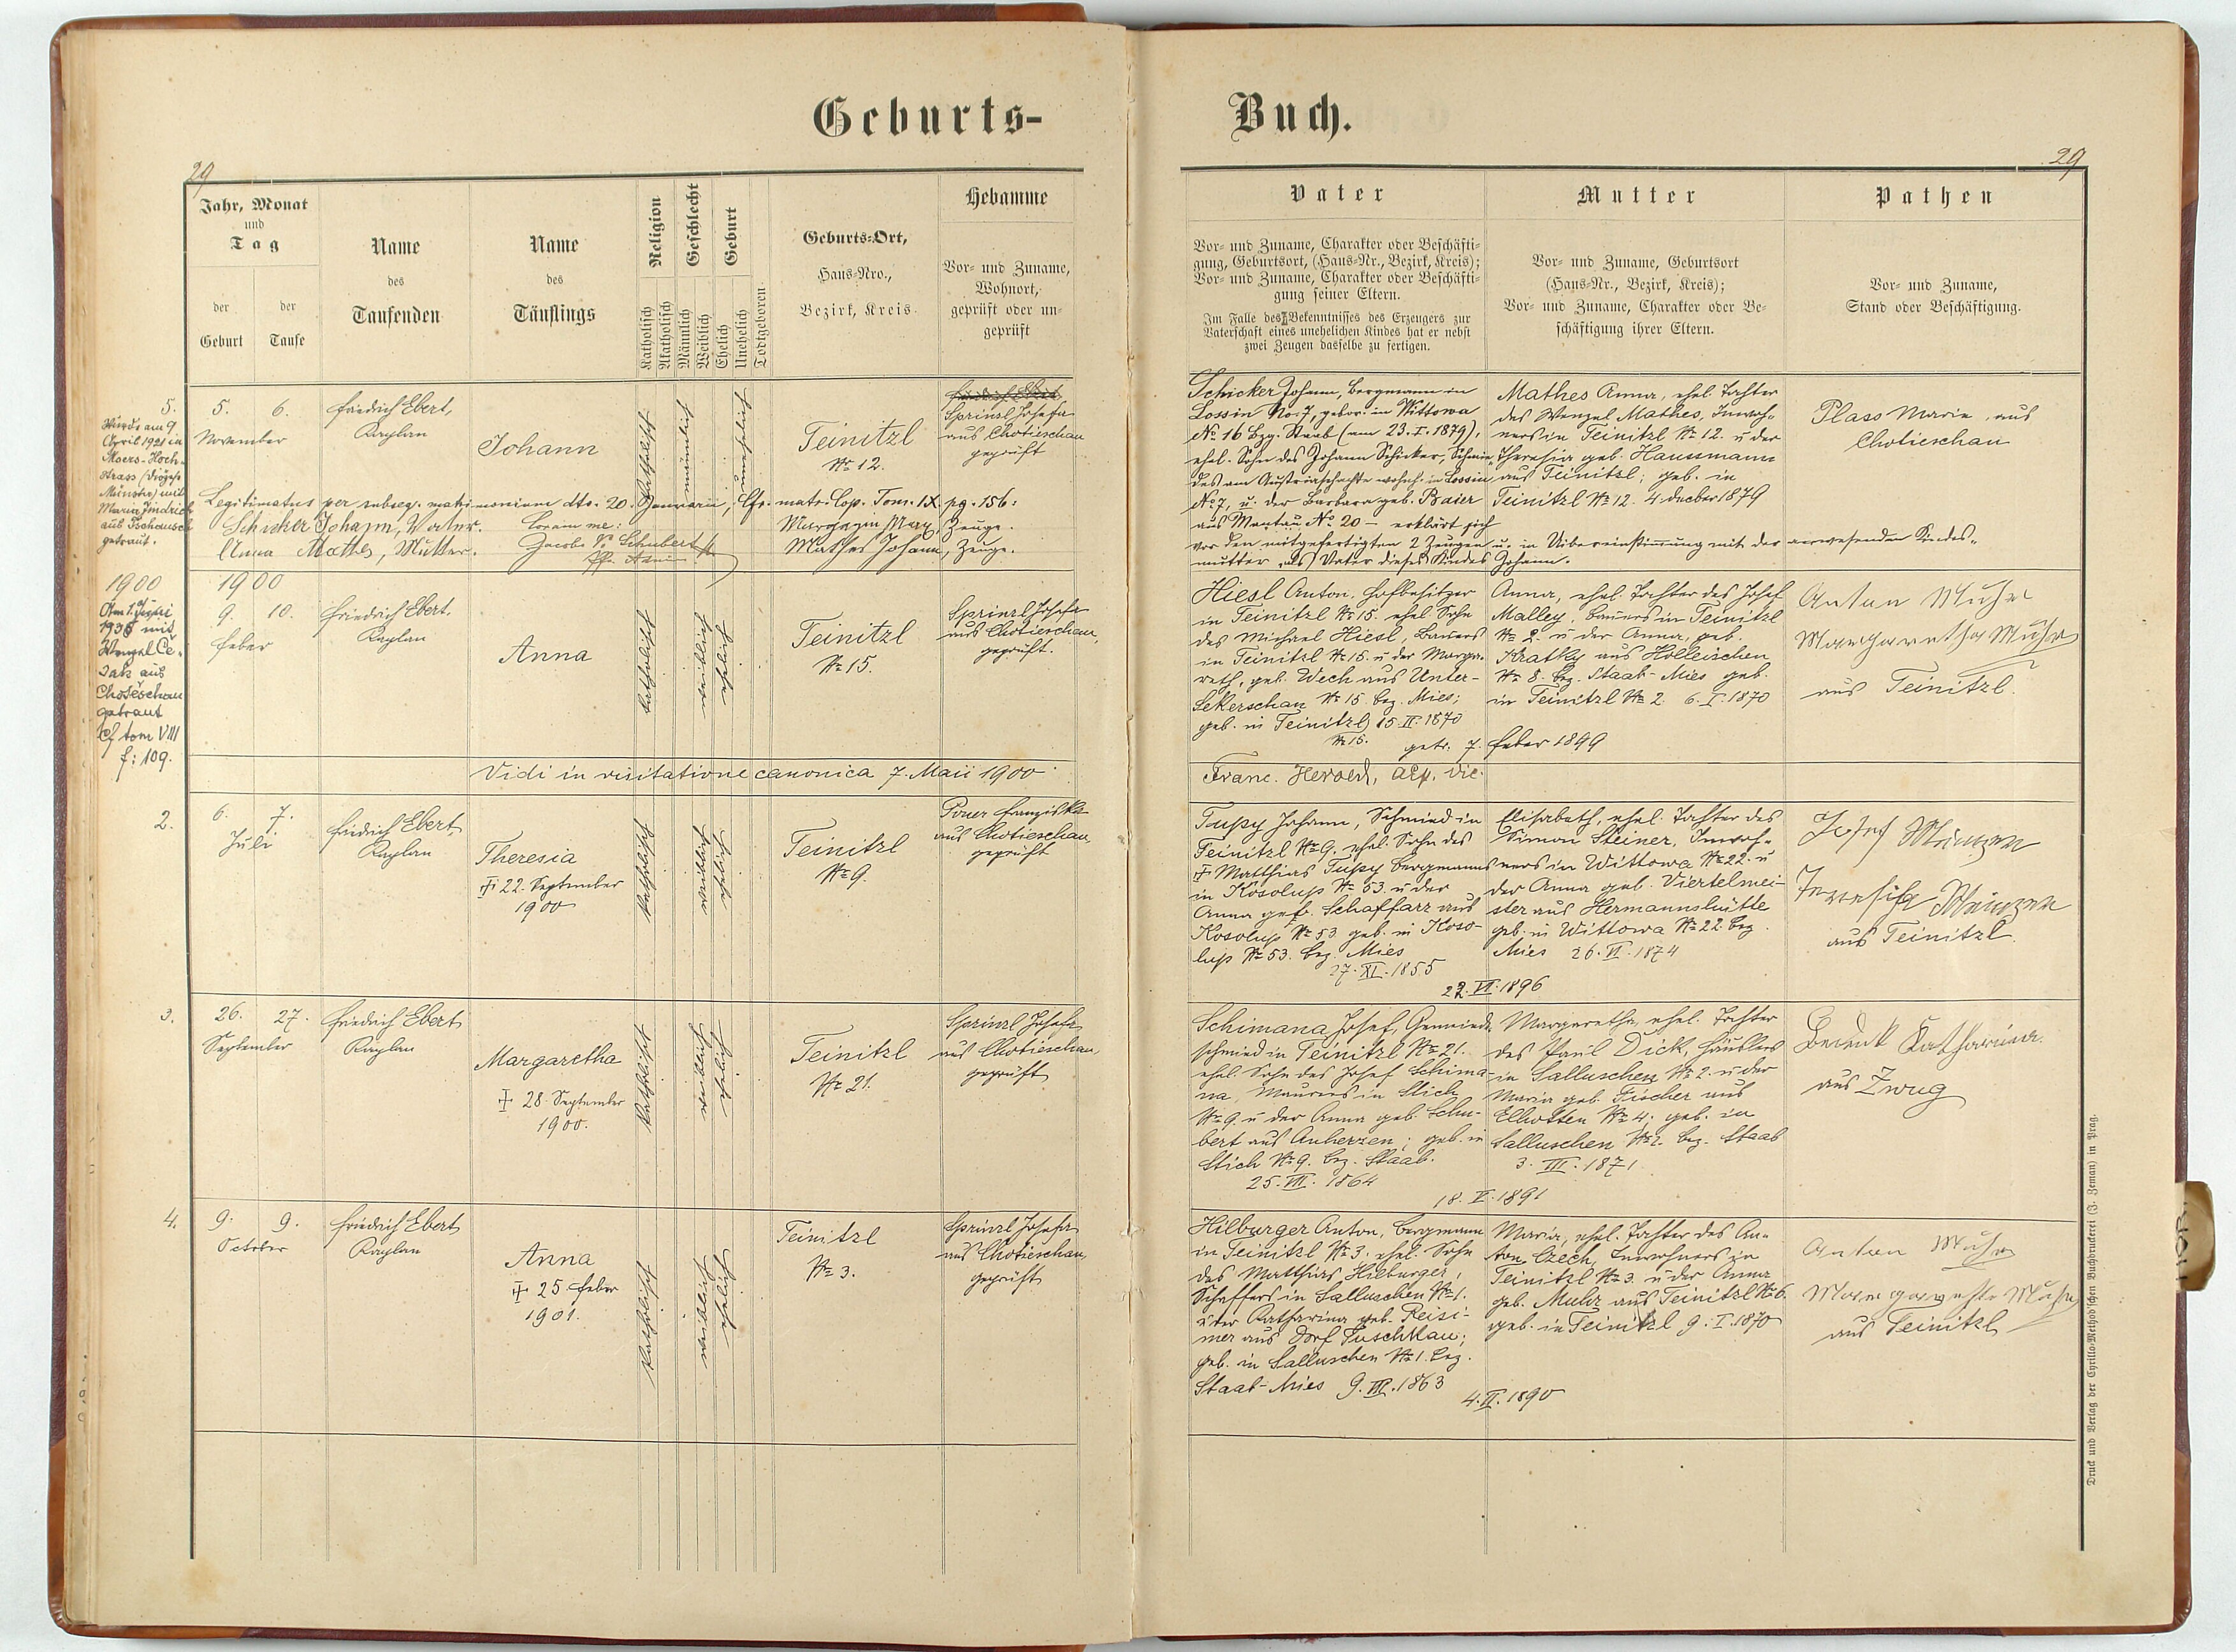 Geburts-
Buch.
29
29
Jahr, Monat
und
Tag
der
Geburt
der
Taufe
Name
des
Taufenden
Name
des
Täuflings
Religion
Katholisch
Akatholisch
Geschlecht
Männlich
Weiblich
Geburt
Ehelich
Unehelich
Todtgeboren
Geburts-Ort,
Haus-Nro.,
Bezirk, Kreis.
Hebamme
Vor- und Zuname,
Wohnort,
geprüft oder un-
geprüft
Vater
Vor- und Zuname, Charakter oder Beschäfti-
gung, Geburtsort, (Haus-Nr., Bezirk, Kreis);
Vor- und Zuname, Charakter oder Beschäfti-
gung seiner Eltern.
Im Falle des Bekenntnisses des Erzeugers zur
Vaterschaft eines unehelichen Kindes hat er nebst
zwei Zeugen dasselbe zu fertigen.
Mutter
Vor- und Zuname, Geburtsort
(Haus-Nr., Bezirk, Kreis);
Vor- und Zuname, Charakter oder Be-
schäftigung ihrer Eltern.
Pathen
Vor- und Zuname,
Stand oder Beschäftigung.
5.
Wurde am 9
April 1921 in
Moers-Hoch-
strass (Diözese
Münster) mit
Maria Jindrich
aus Tschausch
getraut.
5. 6.
November
Friedrich Ebert,
Kaplan
Johann
katholisch
männlich
unehelich
Teinitzl
No 12.
Sprinzl Josefa
aus Chotieschau
geprüft
Schicker Johann, Bergmann in
Lossin No. 7, gebor. in Wittowa
No 16 Bez. Staab (am 23. I. 1879),
ehel. Sohn des Johann Schicker, Schmie-
des am Austriaschachte wohnh. in Lossin
No 7, u. der Barbara geb. Baier
aus Mantau No 20 – erklärt sich
vor den mitgefertigten 2 Zeugen u. in Uibereinstimmung mit der anwesenden Kindes-
mutter als Vater dieses Kindes Johann.
Mathes Anna, ehel. Tochter
des Wenzel Mathes, Inwoh-
ners in Teinitzl No 12. u der
Theresia geb. Hausmann
aus Teinitzl; geb. in
Teinitzl No 12. 4. December 1879
Plass Marie, aus
Chotieschau
Legitimatus per subseq. matrimonium dto. 20. Januarii, Cfr. matr. Cop. Tom. IX. pg. 156:
Schicker Johann, Vater. Coram me:
Anna Mathes, Mutter. Jacobo Schubert
Max, Zeuge.
Mathes Johann, Zeuge.
1900
Am 1. Juni
1936 mit
Wenzel Ce-
dak aus
Chotěschau
getraut
Cf tom VIII
f: 109.
1900
9. 10.
Feber
Friedrich Ebert,
Kaplan
Anna
katholisch
weiblich
ehelich
Teinitzl
No 15.
Sprinzl Josefa
aus Chotieschau,
geprüft.
Hiesl Anton, Hofbesitzer
in Teinitzl No 15. ehel Sohn
des Michael Hiesl, Bauers
in Teinitzl No 15. u der Marga-
reth, geb. Wech aus Unter-
Sekerschan No 15 bez. Mies;
geb. in Teinitzl 15. II. 1870
No 15.
getr. 7. Feber 1899
Anna, ehel. Tochter des Josef
Malley, Bauers in Teinitzl
No 2. u der Anna, geb.
Kratky aus Holleischen
No 8. bez. Staab-Mies geb.
in Teinitzl No 2 6. I. 1870
Anton Muhr
Margaretha Muhr
aus Teinitzl.
Vidi in visitatione canonica 7. Maii 1900
Franc. Herold, aep. vic.
2.
6. 7.
Juli
Friedrich Ebert,
Kaplan
Theresia
† 22. September
1900
katholisch
weiblich
ehelich
Teinitzl
No 9.
Franziska
aus Chotieschau,
geprüft
Tupy Johann, Schmied in
Teinitzl No 9. ehel. Sohn des
† Matthias Tupy Bergmanns
in Kosolup No 53. u der
Anna geb. Schaffarz aus
Kosolup No 53 geb. in Koso-
lup No 53. bez. Mies
27. XI. 1855
22. VI. 1896
Elisabeth, ehel. Tochter des
Simon Steiner, Inwoh-
ners in Wittowa No 22. u
der Anna geb. Viertelmei-
ster aus Hermannshütte
geb. in Wittowa No 22. bez.
Mies 26. VI. 1874
Josef
aus Teinitzl.
3.
26. 27.
September
Friedrich Ebert
Kaplan
Margaretha
† 28. September
1900.
katholisch
weiblich
ehelich
Teinitzl
No 21.
Sprinzl Josefa
aus Chotieschau,
geprüft.
Schimana Josef, Gemeinde-
schmied in Teinitzl No 21.
ehel. Sohn des Josef Schima-
na, Maurers in Stich
No 9. u der Anna geb. Schu-
bert aus Auherzen; geb. in
Stich No 9. bez. Staab.
25. VII. 1864
18. V. 1891
Margaretha, ehel. Tochter
des Paul Dick, Häuslers
in Salluschen No 2. u der
Maria geb. Fischer aus
Ellhotten No 4; geb. in
Salluschen No 2. bez. Staab
3. III. 1871
Katharina
aus Zwug
4.
9. 9.
October
Friedrich Ebert
Kaplan
Anna
† 25 Feber
1901.
katholisch
weiblich
ehelich
Teinitzl
No 3.
Sprinzl Josefa
aus Chotieschau,
geprüft
Hilburger Anton, Bergmann
in Teinitzl No 3. ehel. Sohn
des Matthias Hilburger,
Schaffers in Salluschen No 1.
u der Katharina geb. Reisi-
mer aus Dorf Tuschkau;
geb. in Salluschen No 1. bez.
Staab-Mies 9. III. 1863
4. II. 1890
Maria, ehel. Tochter des An-
ton Czech, Inwohners in
Teinitzl No 3. u der Anna
geb. Muhr aus Teinitzl No 6.
geb. in Teinitzl 9. I. 1870
Anton Muhr
Margarethe Muhr
aus Teinitzl
Druck und Verlag der Cyrillo-Method'schen Buchdruckerei (J. Zeman) in Prag.